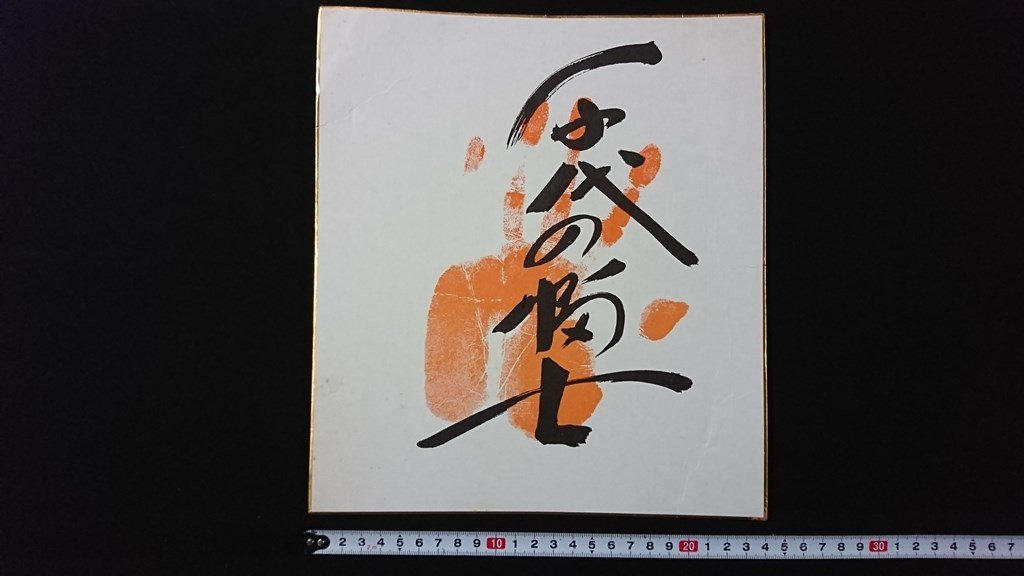 千代の富士
2 3 4 5 6 7 8 9 10 1 2 3 4 5 6 7 8 9 20 1 2 3 4 5 6 7 8 9 30 1 2 3 4 5 6 7